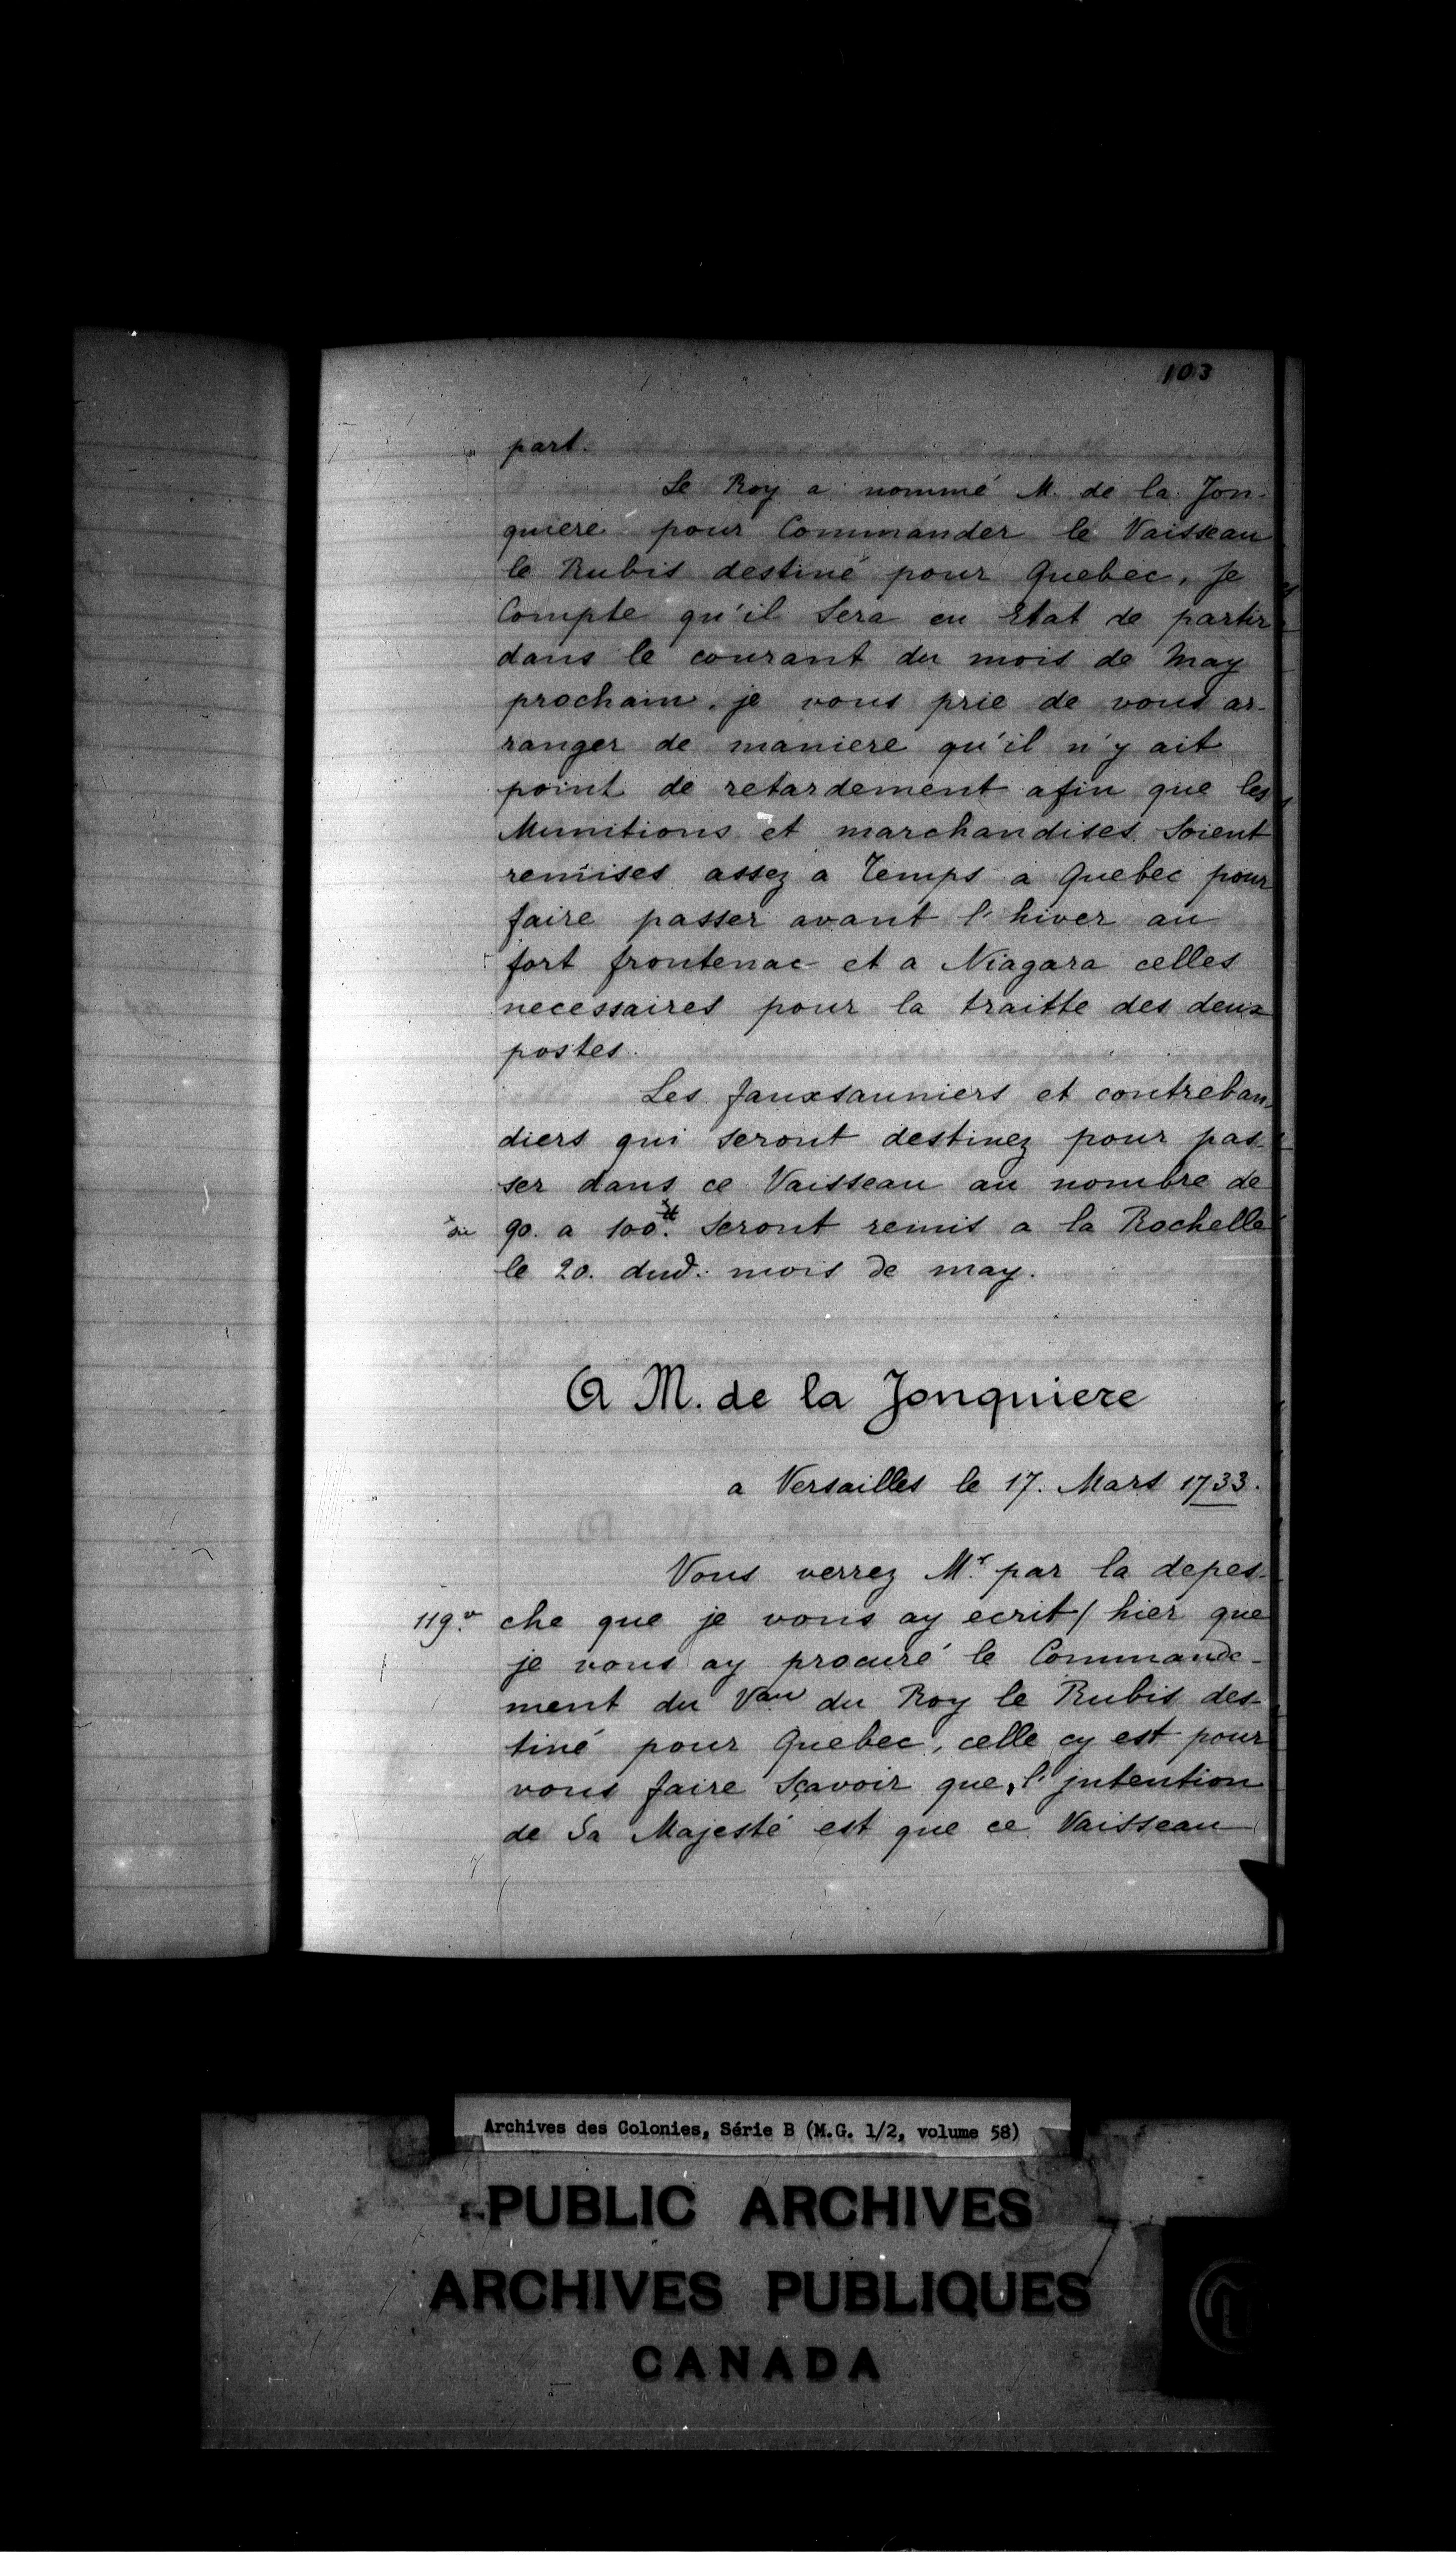 103
part.
Le Roy a nommé M. de la Jon-
quiere pour Commander le Vaisseau
le Rubis destiné pour Quebec, Je
Compte qu'il Sera en Etat de partir
dans le courant du mois de May
prochain, je vous prie de vous ar-
ranger de maniere qu'il n'y ait
point de retardement afin que les
Munitions et marchandises Soient
remises assez a Temps a Quebec pour
faire passer avant l'hiver au
fort frontenac et a Niagara celles
necessaires pour la traitte des deux
postes.
Les fauxsauniers et contreban-
diers qui seront destinez pour pas-
ser dans ce Vaisseau au nombre de
90. a 100.# seront remis a la Rochelle
le 20. dud. mois de may.
A M. de la Jonquiere
a Versailles le 17. Mars 1733.
Vous verrez Mr. par la depes-
119.v che que je vous ay ecrit / hier que
je vous ay procuré le Commande-
ment du Vau du Roy le Rubis des-
tiné pour Quebec, celle cy est pour
vous faire Sçavoir que, l'jntention
de Sa Majesté est que ce Vaisseau
Archives des Colonies, Série B (M.G. 1/2, volume 58)
PUBLIC ARCHIVES
ARCHIVES PUBLIQUES
CANADA